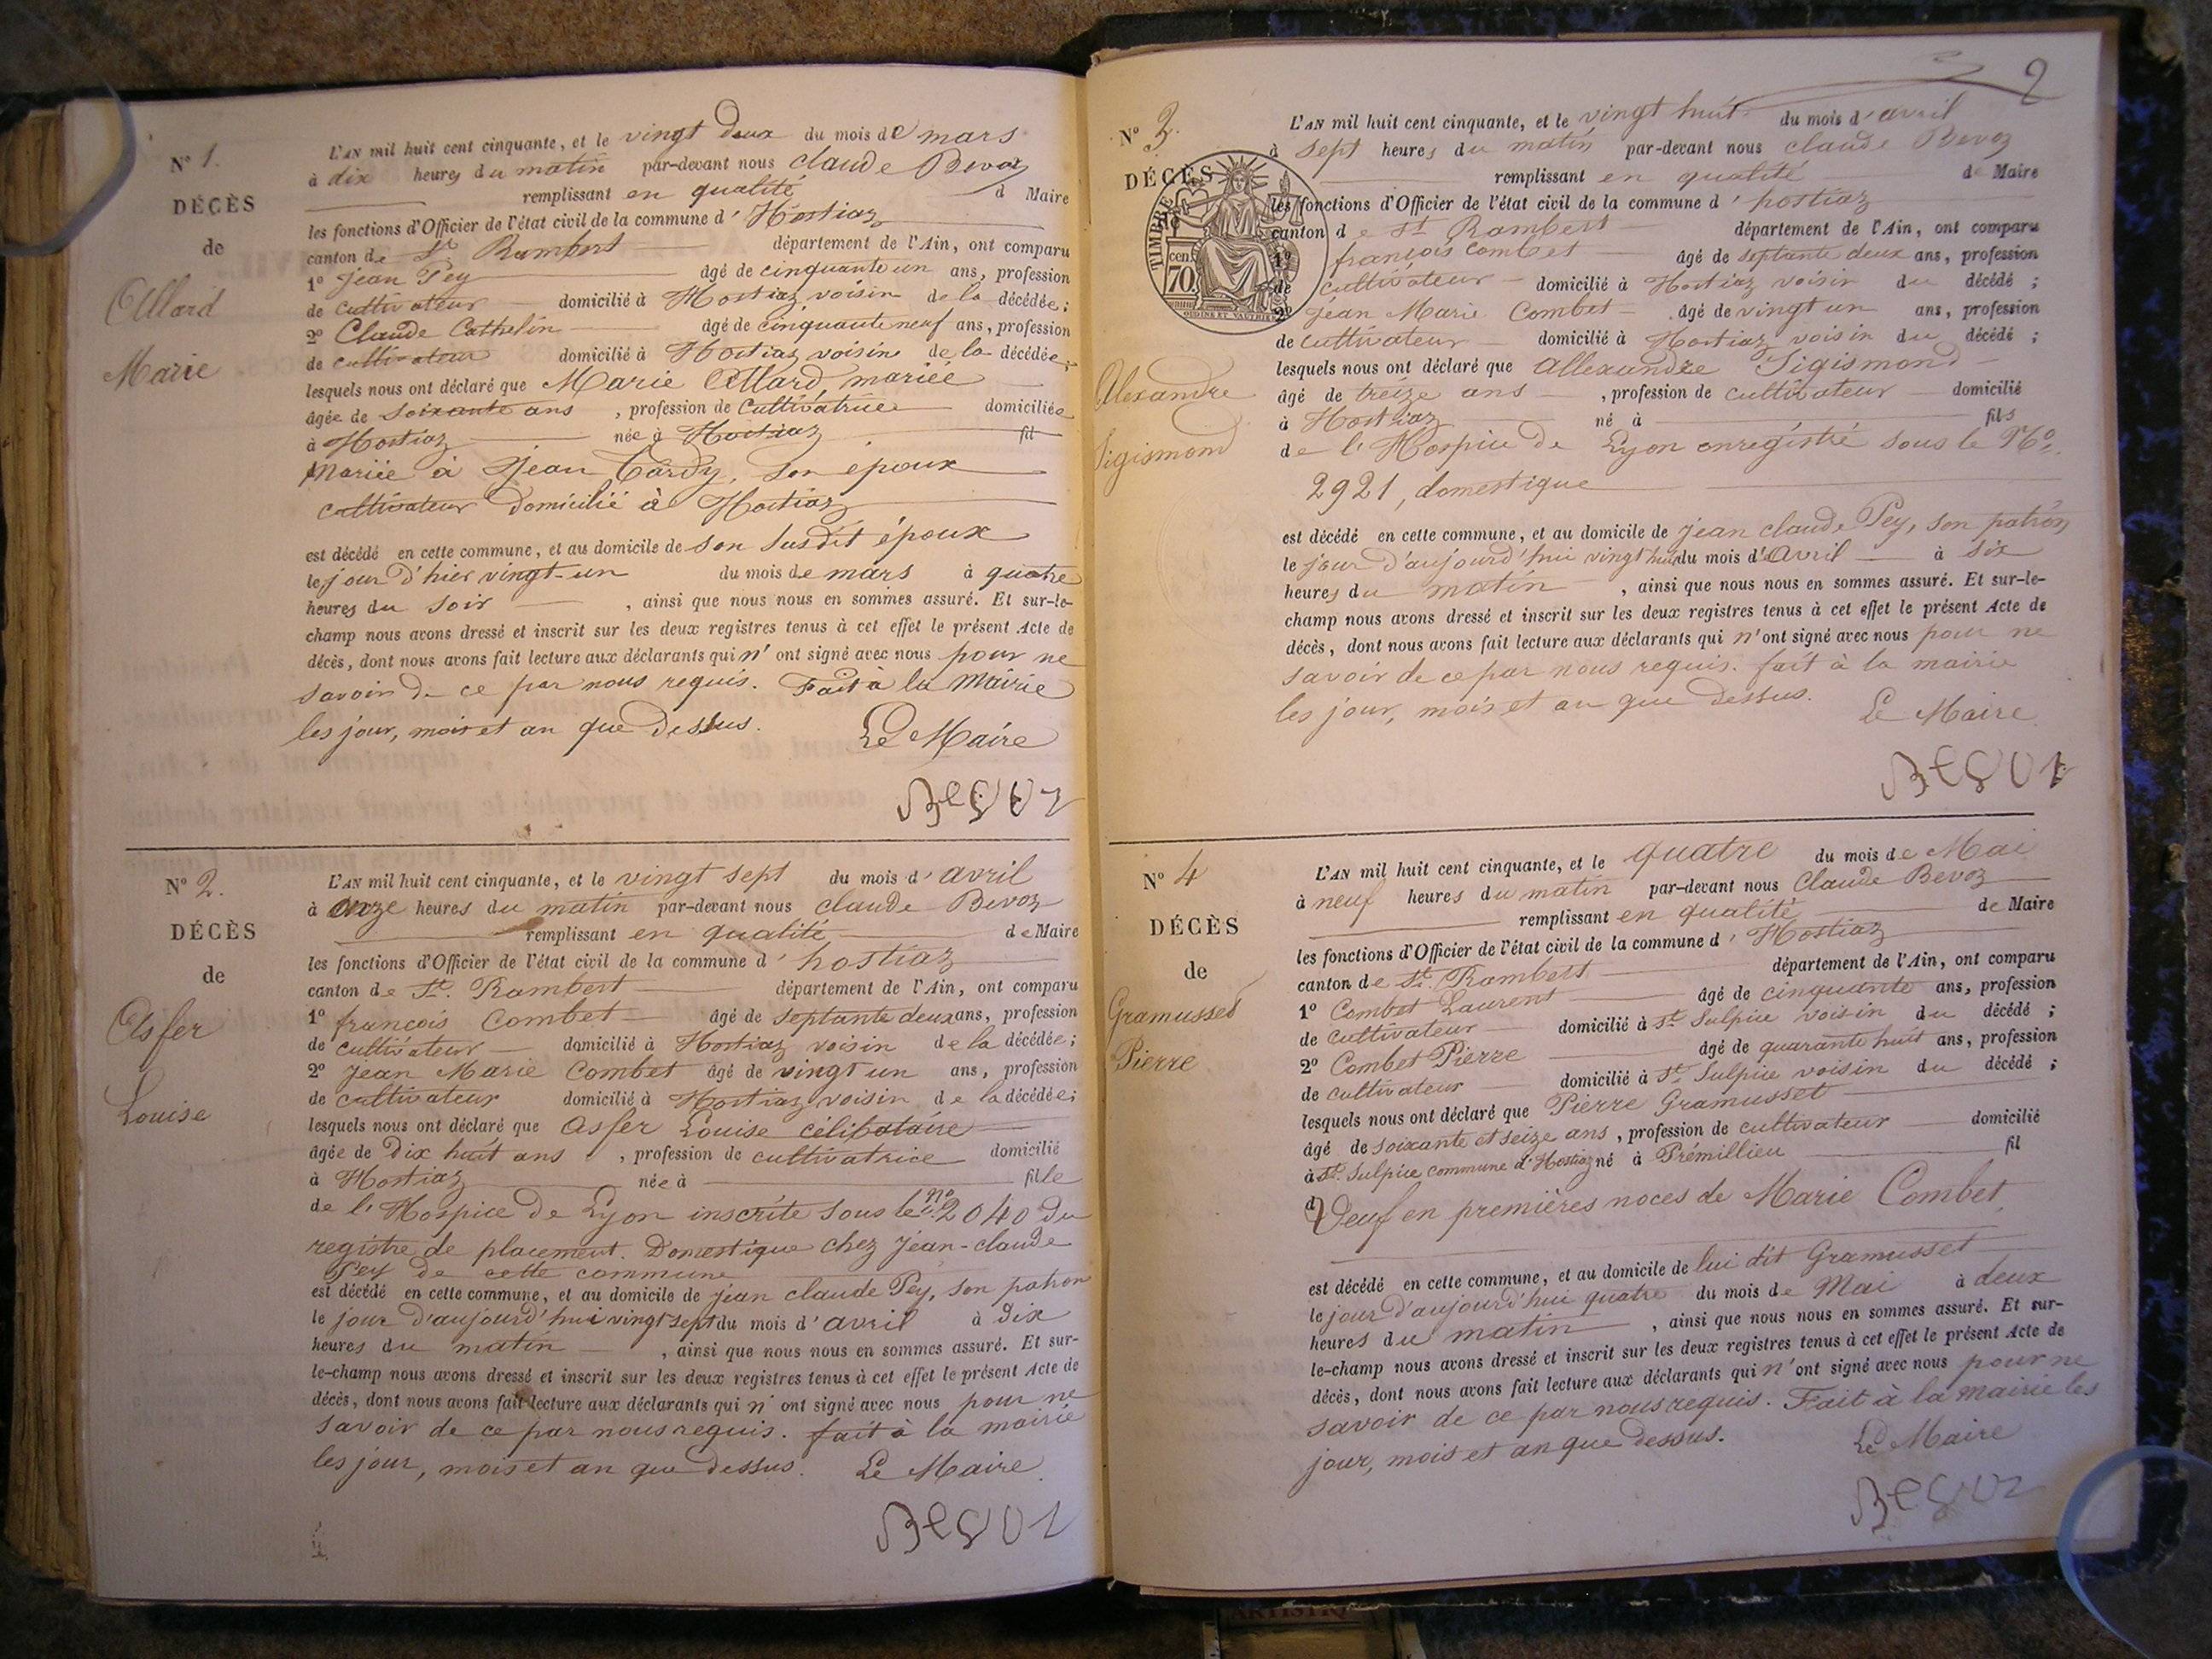 N° 1.
DÉCÈS
de
Allard
Marie
L'AN mil huit cent cinquante, et le vingt deux du mois de mars
à dix heures du matin par-devant nous Claude Bevoz
remplissant en qualité d Maire
les fonctions d'Officier de l'état civil de la commune d'Hostiaz
canton de St. Rambert département de l'Ain, ont comparu
1° Jean Pey âgé de cinquante un ans, profession
de cultivateur domicilié à Hostiaz voisin de la décédée;
2° Claude Cathelin âgé de cinquante neuf ans, profession
de cultivateur domicilié à Hostiaz voisin de la décédée;
lesquels nous ont déclaré que Marie Allard, mariée
âgée de soixante ans, profession de cultivatrice domiciliée
à Hostiaz née à Hostiaz fil
Mariée à Jean Cardy, son époux
cultivateur domicilié à Hostiaz
est décédé en cette commune, et au domicile de son susdit époux
le jour d'hier vingt-un du mois de mars à quatre
heures du soir, ainsi que nous nous en sommes assuré. Et sur-le-
champ nous avons dressé et inscrit sur les deux registres tenus à cet effet le présent Acte de
décès, dont nous avons fait lecture aux déclarants qui n'ont signé avec nous pour ne
savoir de ce par nous requis. Fait à la Mairie
les jour, mois et an que dessus. Le Maire
Bevoz
N° 2.
DÉCÈS
de
Asfer
Louise
L'AN mil huit cent cinquante, et le vingt sept du mois d'avril
à onze heures du matin par-devant nous claude Bevoz
remplissant en qualité de Maire
les fonctions d'Officier de l'état civil de la commune d'hostiaz
canton de St. Rambert département de l'Ain, ont comparu
1° françois Combet âgé de septante deux ans, profession
de cultivateur domicilié à Hostiaz voisin de la décédée;
2° Jean Marie Combet âgé de vingt un ans, profession
de cultivateur domicilié à Hostiaz voisin de la décédée;
lesquels nous ont déclaré que Asfer Louise célibataire
âgée de Dix huit ans, profession de cultivatrice domicilié
à Hostiaz née à fille
de l'Hospice de Lyon inscrite sous le n° 2040 du
registre de placement. Domestique chez Jean-claude
Pey de cette commune
est décédé en cette commune, et au domicile de jean claude Pey, son patron
le jour d'aujourd'hui vingt sept du mois d'avril à Dix
heures du matin, ainsi que nous nous en sommes assuré. Et sur-
le-champ nous avons dressé et inscrit sur les deux registres tenus à cet effet le présent Acte de
décès, dont nous avons fait lecture aux déclarants qui n'ont signé avec nous pour ne
savoir de ce par nous requis. fait à la mairie
les jour, mois et an que dessus. Le Maire.
Bevoz
2
N° 3.
DÉCÈS
de
TIMBRE
cen.
70.
OUDINE ET VAUTHIER
Alexandre
Sigismond
L'AN mil huit cent cinquante, et le vingt huit du mois d'avril
à sept heures du matin par-devant nous claude Bevoz
remplissant en qualité de Maire
les fonctions d'Officier de l'état civil de la commune d'hostiaz
canton de St Rambert département de l'Ain, ont comparu
1° françois Combet âgé de septante deux ans, profession
de cultivateur domicilié à Hostiaz voisin du décédé;
2° Jean Marie Combet âgé de vingt un ans, profession
de cultivateur domicilié à Hostiaz voisin du décédé;
lesquels nous ont déclaré que Allexandre Sigismond
âgé de treize ans, profession de cultivateur domicilié
à Hostiaz né à fils
de l'Hospice de Lyon enregistré sous le N°.
2921, domestique
est décédé en cette commune, et au domicile de jean claude Pey, son patron
le jour d'aujourd'hui vingt huit du mois d'Avril à six
heures du matin, ainsi que nous nous en sommes assuré. Et sur-le-
champ nous avons dressé et inscrit sur les deux registres tenus à cet effet le présent Acte de
décès, dont nous avons fait lecture aux déclarants qui n'ont signé avec nous pour ne
savoir de ce par nous requis. fait à la mairie
les jour, mois et an que dessus. Le Maire
Bevoz
N° 4
DÉCÈS
de
Gramusset
Pierre
L'AN mil huit cent cinquante, et le quatre du mois de Mai
à neuf heures du matin par-devant nous Claude Bevoz
remplissant en qualité de Maire
les fonctions d'Officier de l'état civil de la commune d'Hostiaz
canton de St. Rambert département de l'Ain, ont comparu
1° Combet Laurent âgé de cinquante ans, profession
de cultivateur domicilié à St. Sulpice voisin du décédé;
2° Combet Pierre âgé de quarante huit ans, profession
de cultivateur domicilié à St. Sulpice voisin du décédé;
lesquels nous ont déclaré que Pierre Gramusset
âgé de soixante et seize ans, profession de cultivateur domicilié
à St. Sulpice commune d'Hostiaz né à Prémillieu fil
d Veuf en premières noces de Marie Combet
est décédé en cette commune, et au domicile de lui dit Gramusset
le jour d'aujourd'hui quatre du mois de Mai à deux
heures du matin, ainsi que nous nous en sommes assuré. Et sur-
le-champ nous avons dressé et inscrit sur les deux registres tenus à cet effet le présent Acte de
décès, dont nous avons fait lecture aux déclarants qui n'ont signé avec nous pour ne
savoir de ce par nous requis. Fait à la mairie les
jour, mois et an que dessus. Le Maire
Bevoz